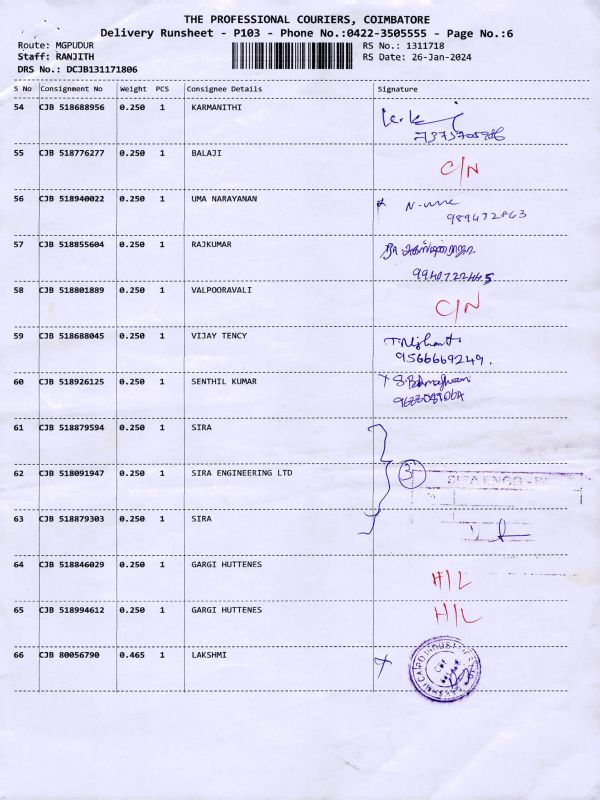 THE PROFESSIONAL COURIERS, COIMBATORE
Delivery Runsheet - P103 - Phone No.:0422-3505555 - Page No.:6
Route: MGPUDUR RS No.: 1311718
Staff: RANJITH RS Date: 26-Jan-2024
DRS No.: DCJB131171806
S No Consignment No Weight PCS Consignee Details Signature
54 CJB 518688956 0.250 1 KARMANITHI
55 CJB 518776277 0.250 1 BALAJI C/N
56 CJB 518940022 0.250 1 UMA NARAYANAN
57 CJB 518855604 0.250 1 RAJKUMAR
9940722445
58 CJB 518801889 0.250 1 VALPOORAVALI C/N
59 CJB 518688045 0.250 1 VIJAY TENCY
9566669249.
60 CJB 518926125 0.250 1 SENTHIL KUMAR
61 CJB 518879594 0.250 1 SIRA
62 CJB 518091947 0.250 1 SIRA ENGINEERING LTD 3
63 CJB 518879303 0.250 1 SIRA
64 CJB 518846029 0.250 1 GARGI HUTTENES H/L
65 CJB 518994612 0.250 1 GARGI HUTTENES H/L
66 CJB 80056790 0.465 1 LAKSHMI